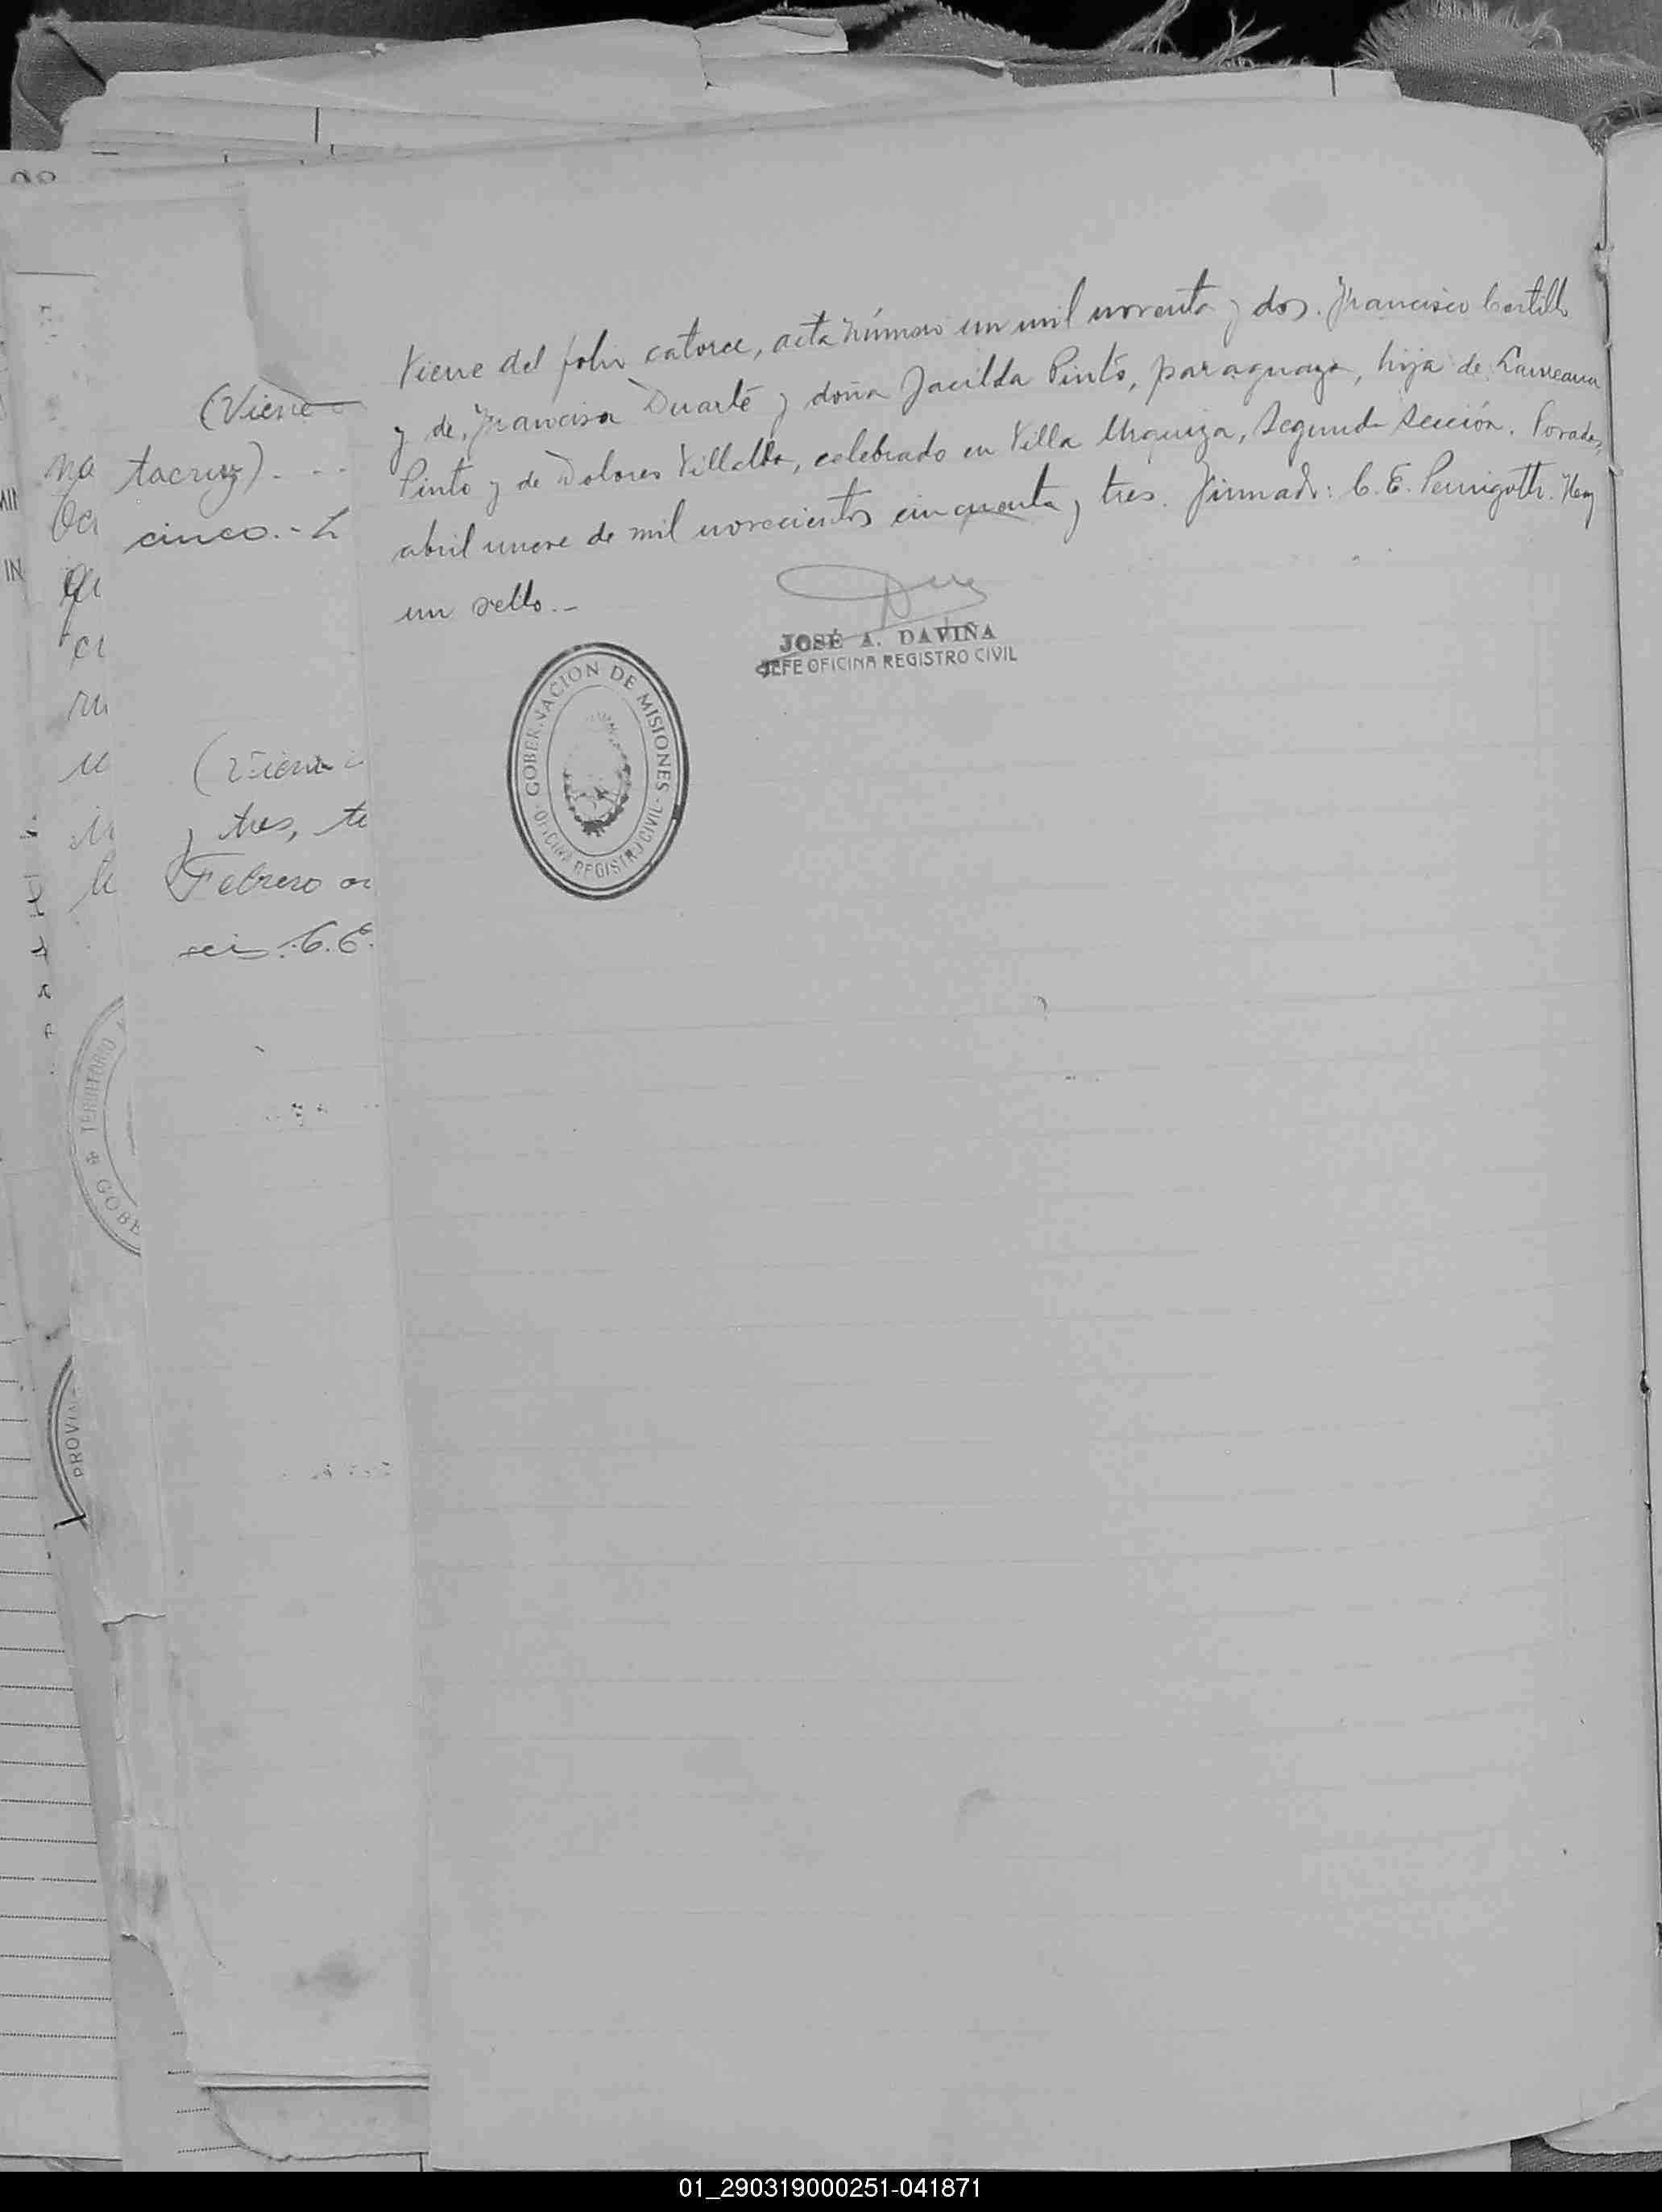 Viene del folio catorce, acta número un mil noventa y dos. Francisco Castillo
y de Francisca Duarte y doña Jacilda Pinto, paraguaya, hija de Laureana
Pinto y de Dolores Villalba, celebrado en Villa Urquiza, Segunda Sección. Posadas,
abril nueve de mil novecientos cincuenta y tres. Firmado: C. E. Perrigotti. Hay
un sello.-
JOSÉ A. DAVIÑA
JEFE OFICINA REGISTRO CIVIL
GOBERNACION DE MISIONES
OFICINA REGISTRO CIVIL
(Viene
na
tacruz). - - -
cinco.-
(Viene
y tres, te
Febrero
seis. C.E.
TERRITORIO
GOBE
PROVIN
01_290319000251-041871